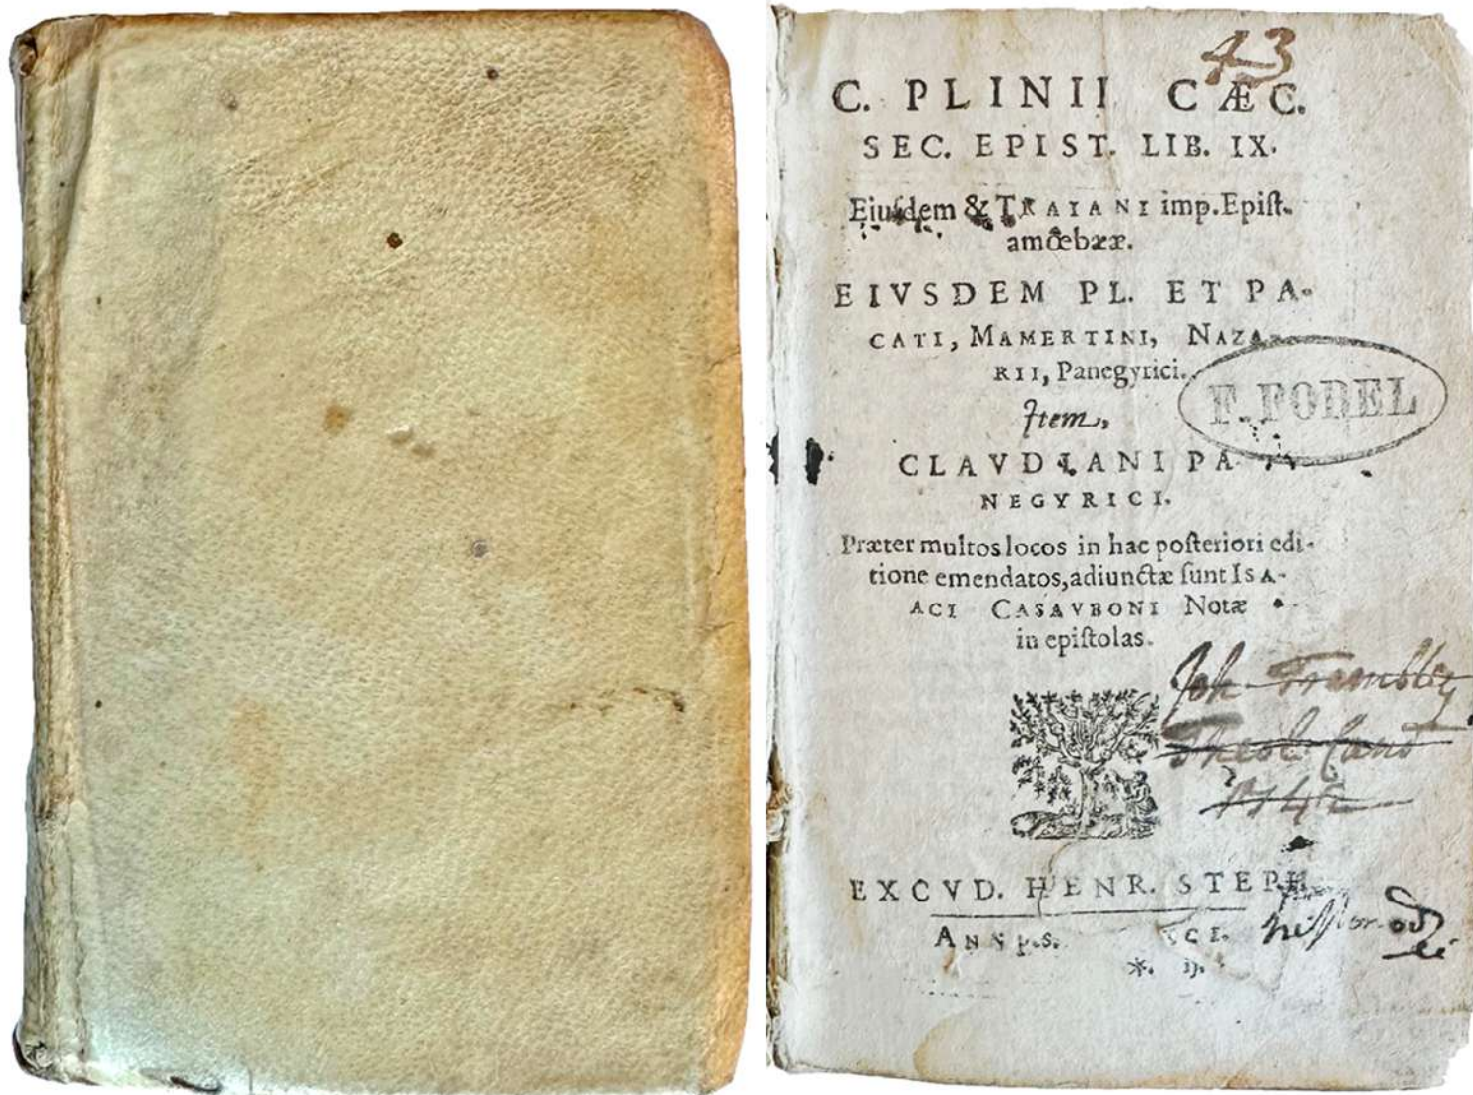 43
C. PLINII CÆC.
SEC. EPIST. LIB. IX.
Eiuſdem & TRAIANI imp. Epiſt.
amœbææ.
EIVSDEM PL. ET PA-
CATI, MAMERTINI, NAZA-
RII, Panegyrici.
Item,
F. FOREL
CLAVDIANI PA-
NEGYRICI.
Præter multos locos in hac poſteriori edi-
tione emendatos, adiunctæ ſunt ISA-
ACI CASAVBONI Notæ
in epiſtolas.
Joh Trembley
Theol Cand
1742
EXCVD. HENR. STEPH.